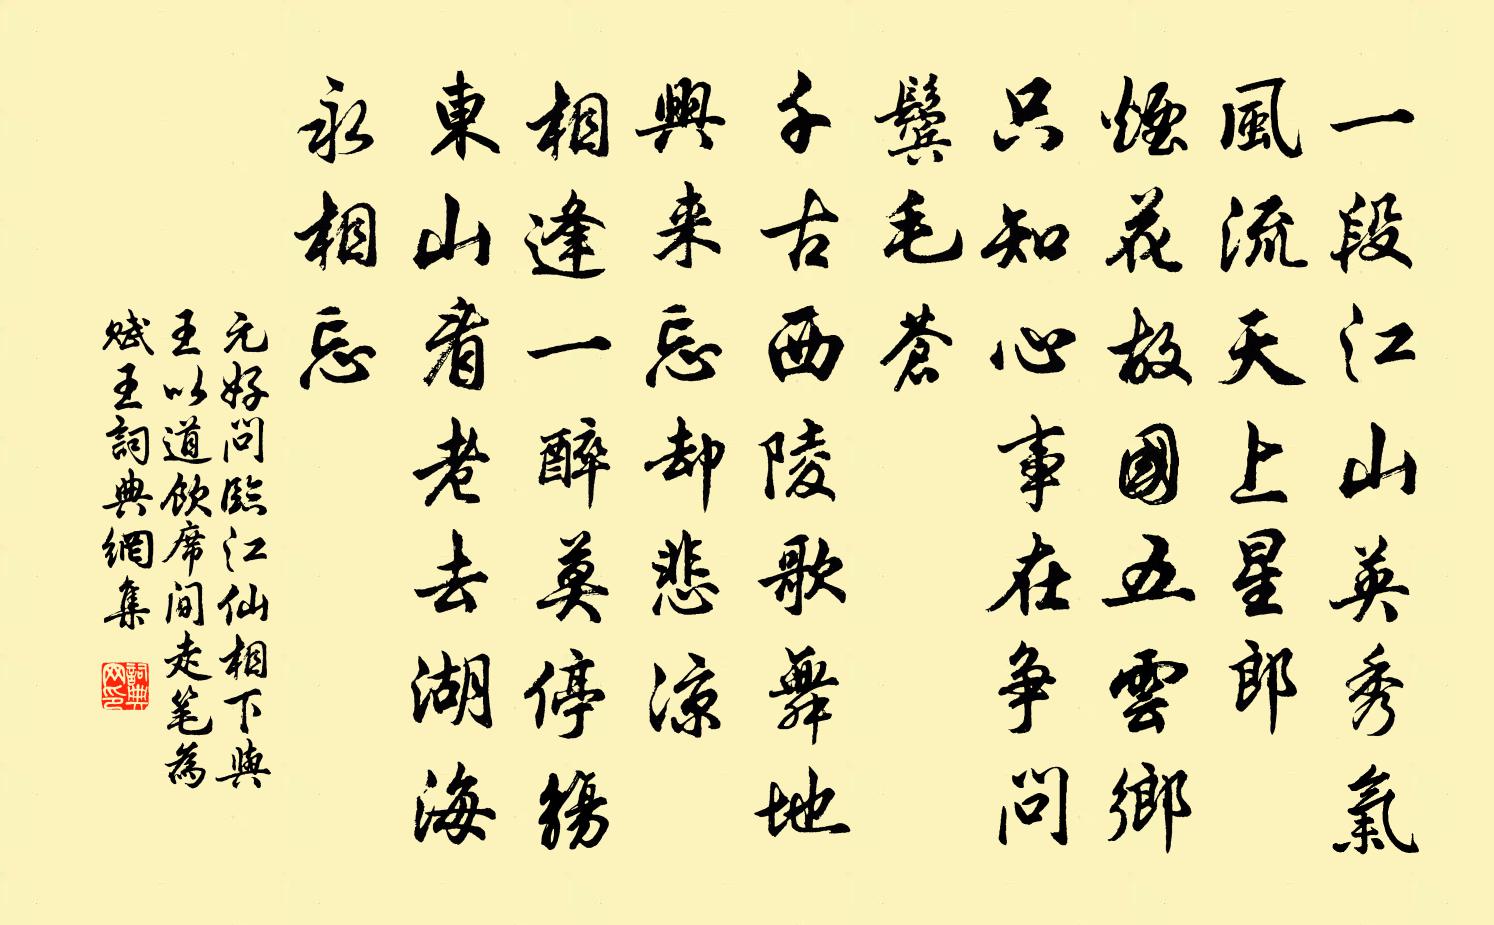 一段江山英秀氣
風流天上星郎
煙花故國五雲鄉
只知心事在争問
鬢毛蒼
千古西陵歌舞地
興来忘却悲涼
相逢一醉莫停觴
東山看老去湖海
永相忘
元好問臨江仙相下與
王以道飲席间走笔為
赋王詞典網集
詞典网印